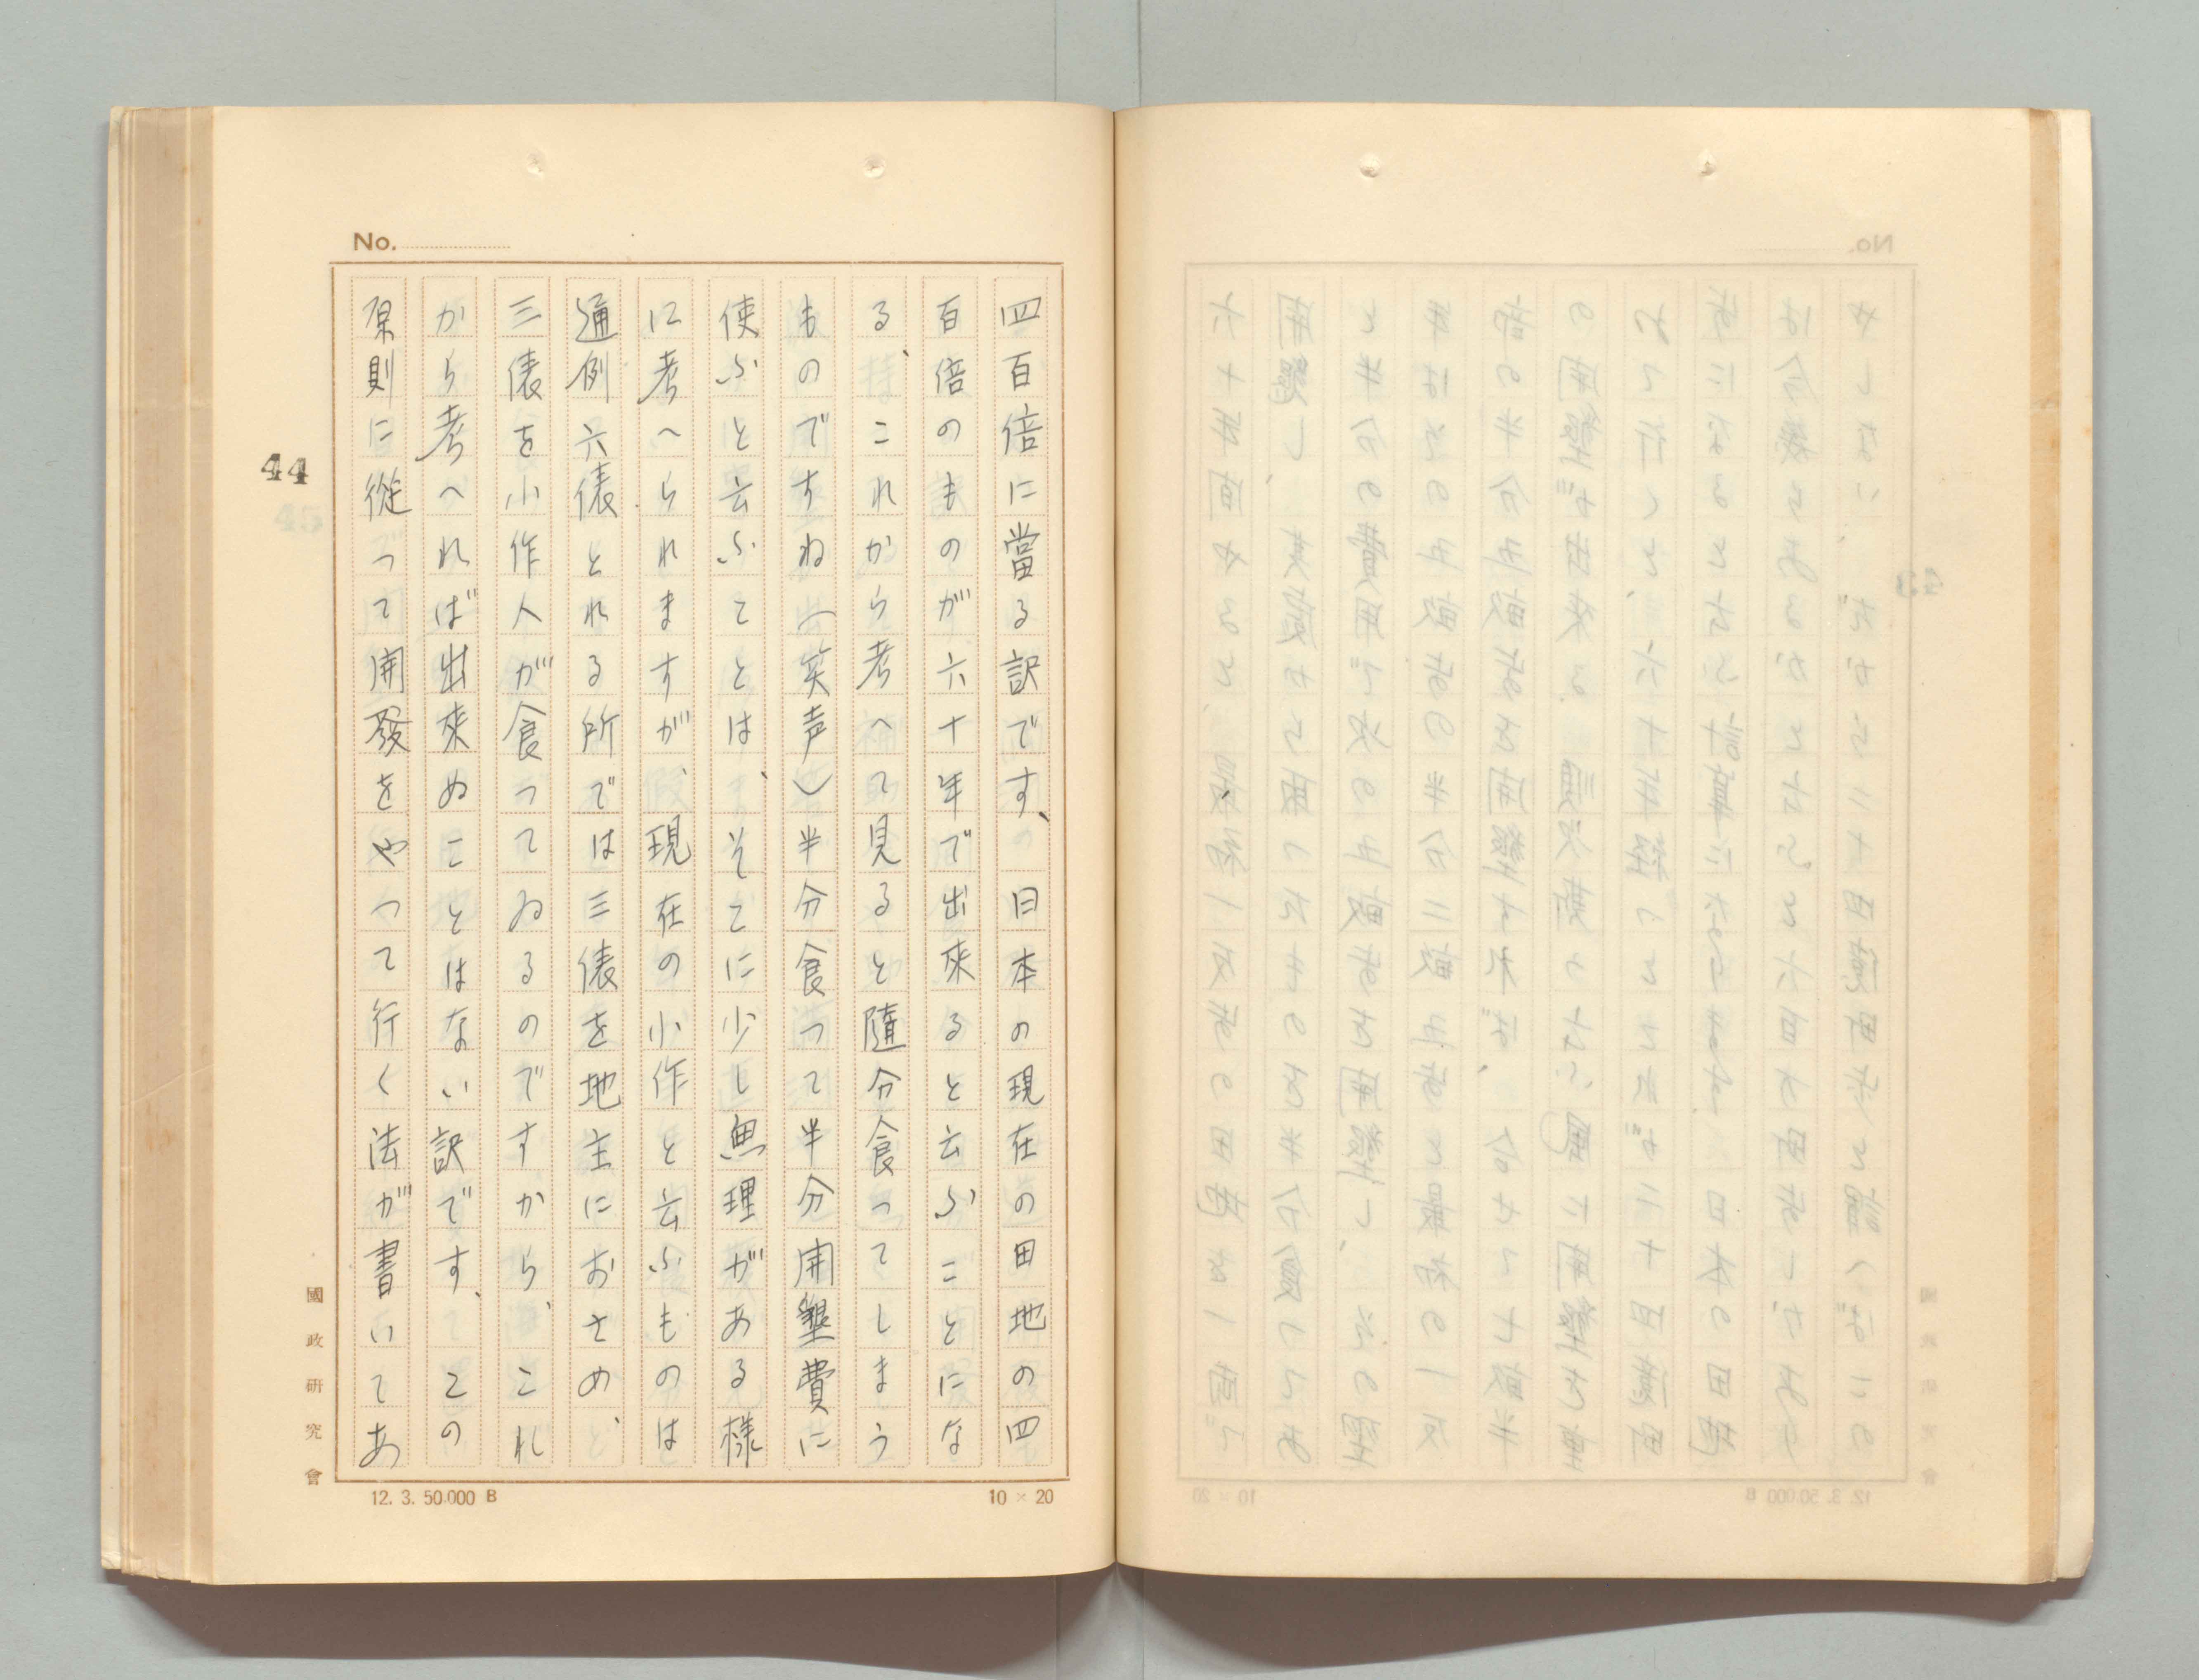 No.
四百倍に當る訳です、　日本の現在の田地の四
百倍のものが六十年で出來ると云ふことにな
る、これから考へて見ると隨分食ってしまう
ものですね（笑声）半分食って半分開墾費に
使ふと云ふことは、そこに少し無理がある様
に考へられますが、現在の小作と云ふものは
通例六俵とれる所では三俵を地主におさめ、
三俵を小作人が食ってゐるのですから、これ
から考へれば出來ぬことはない訳です、この
原則に從って開發をやって行く法が書いてあ
44
國政研究會
12. 3. 50.000 B
10 × 20